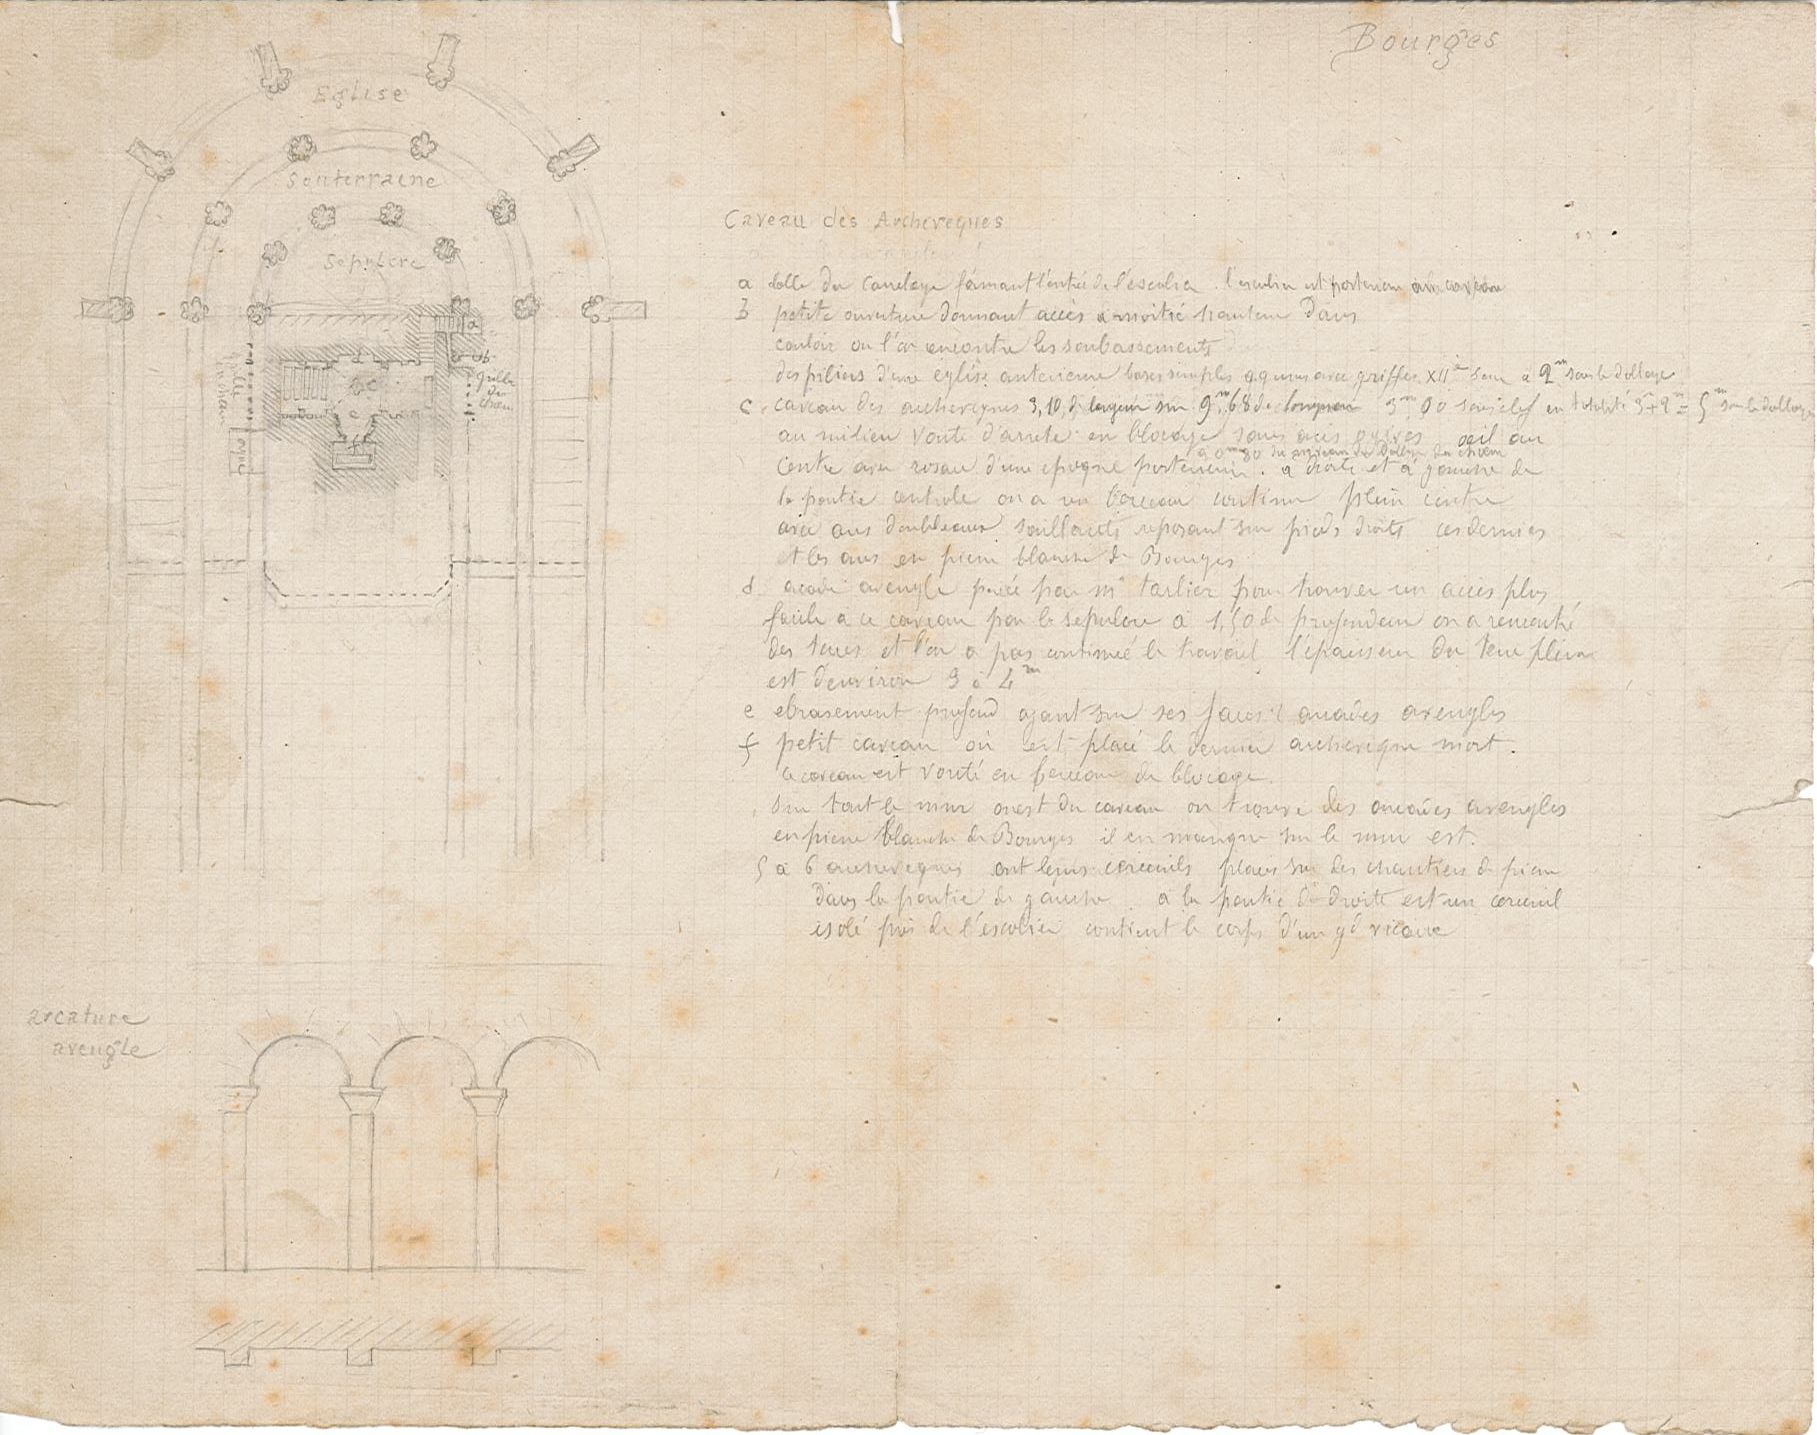 Bourges
Eglise
Souterraine
Sepulcre
grille
du
chœur
orgue
Caveau des Archeveques
a dalle du carrelage fermant l'entrée de l'escalier. l'escalier est posterieur au caveau
b petite ouverture donnant accès a moitié hauteur dans
couloir ou l'on rencontre les soubassements
des piliers d'une eglise anterieure bases simples avec griffes XIIe à 2m sous le dallage
c. caveau des archeveques 3,10 de largeur sur 9m,68 de longueur 3m00 sous clef en totalité 3m+2m = 5m sous le dallage
au milieu voute d'arrete en blocage sans arcs ogives oeil au
a 0m80 du niveau du dallage du chœur
centre avec rosace d'une epoque posterieure. a droite et a gauche de
la partie centrale on a un berceau continu plein cintre
avec arcs doubleaux saillants reposant sur pieds droits ces derniers
et les arcs en pierre blanche de Bourges
d. arcade aveugle percée par Mr tarlier pour trouver un acces plus
facile a ce caveau par le sepulcre a 1,50 de profondeur on a rencontré
des terres et l'on a pas continué le travail l'épaisseur du terre plein
est d'environ 3 à 4m
e ebrasement profond ayant sur ses faces 2 arcades aveugles
f petit caveau où est placé le dernier archeveque mort.
ce caveau est vouté en berceau de blocage.
Sur tout le mur ouest du caveau on trouve des arcades aveugles
en pierre blanche de Bourges il en manque sur le mur est.
5 a 6 archeveques ont leurs cercueils placés sur des chantiers de pierre
dans la partie de gauche. a la partie de droite est un cercueil
isolé près de l'escalier contient le corps d'un gd vicaire
arcature
aveugle